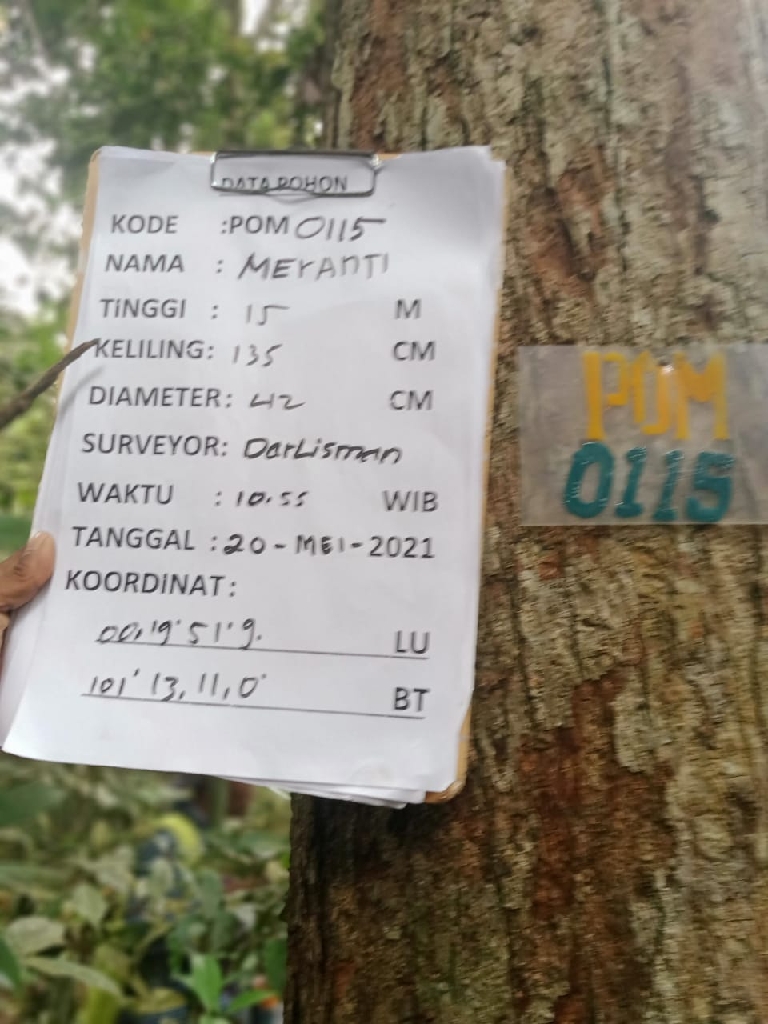 DATA POHON
KODE :POM 0115
NAMA : MERANTI
TINGGI : 15 M
KELILING: 135 CM
DIAMETER: 42 CM
SURVEYOR: Darlisman
WAKTU : 10.55 WIB
TANGGAL : 20 - MEI - 2021
KOORDINAT:
00,19'51'9. LU
101' 13, 11,0' BT
POM
0115